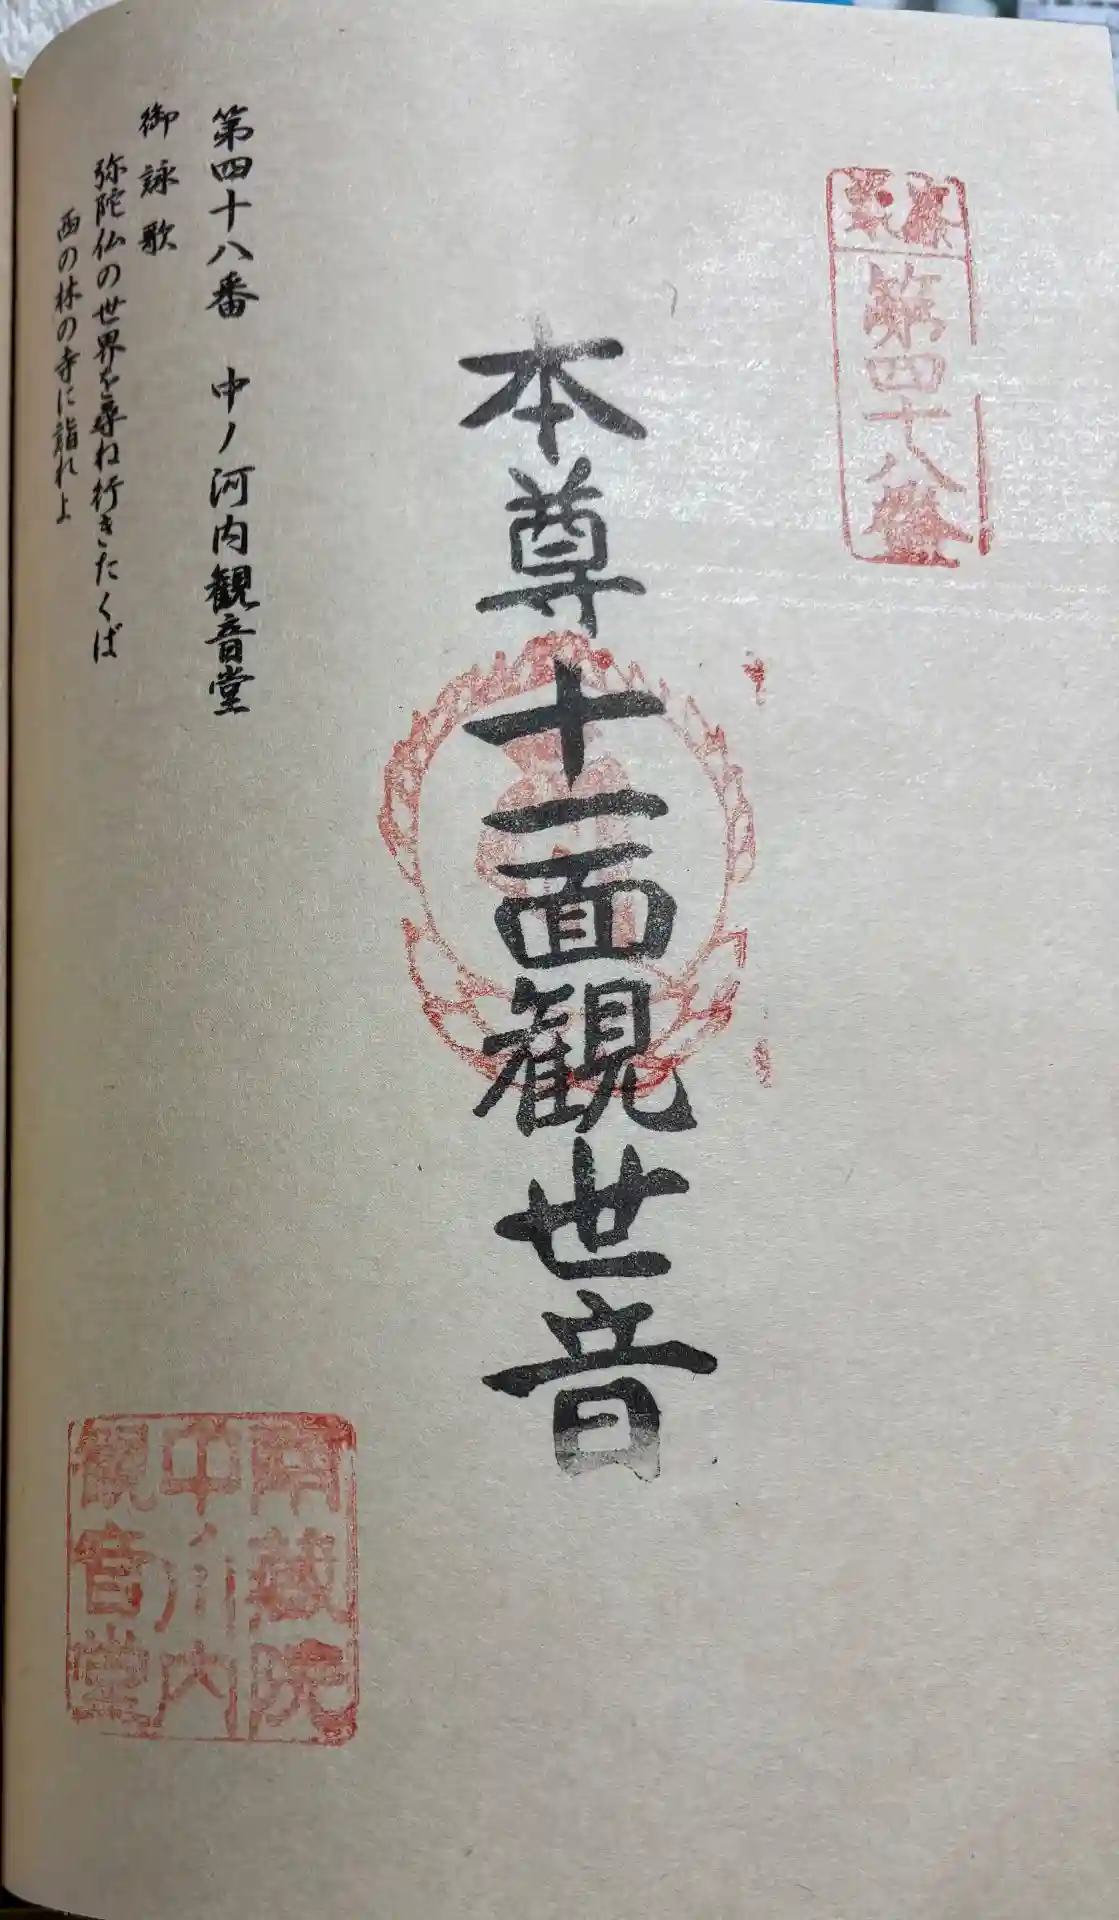 第四十八番
本尊十一面観世音
第四十八番 中ノ河内観音堂
御詠歌
弥陀仏の世界を尋ね行きたくば
西の林の寺に詣れよ
南蔵院
中ノ川内
観音堂